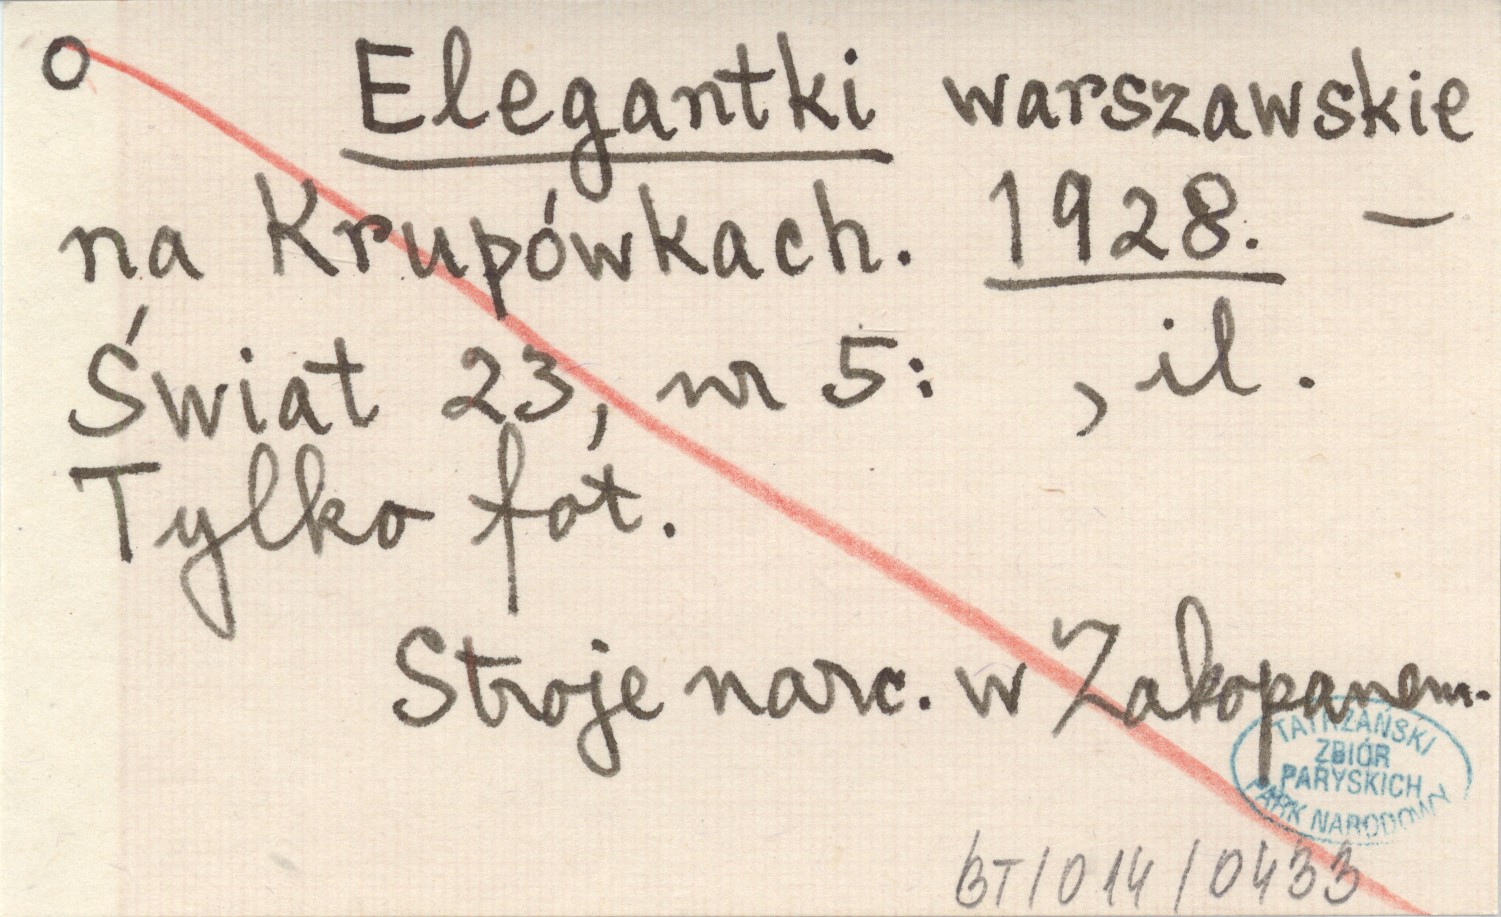 O Elegantki warszawskie
na Krupówkach. 1928. —
Świat 23, nr 5: , il.
Tylko fot.
Stroje narc. w Zakopanem.
TATRZAŃSKI
ZBIÓR
PARYSKICH
PARK NARODOWY
BT/014/0433